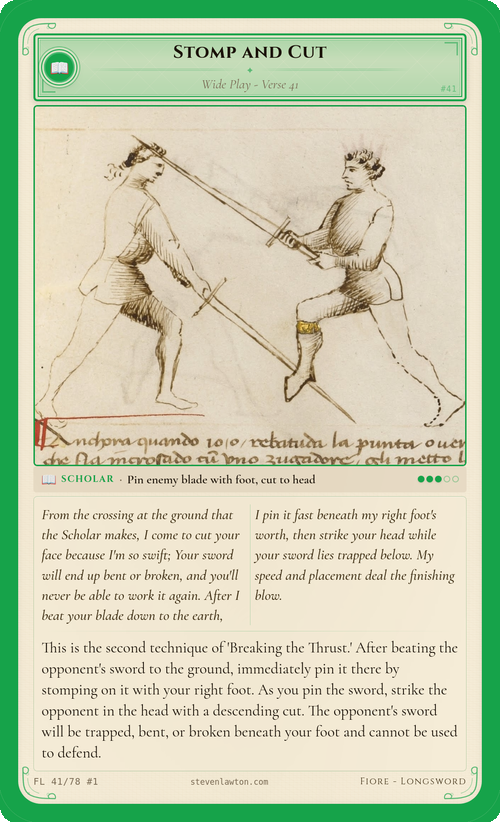 STOMP AND CUT
Wide Play - Verse 41
#41
Anchora quando io io, rebatuda la punta over
che sia incrosado cũ uno zugadore, gli metto l
SCHOLAR · Pin enemy blade with foot, cut to head
From the crossing at the ground that
the Scholar makes, I come to cut your
face because I'm so swift; Your sword
will end up bent or broken, and you'll
never be able to work it again. After I
beat your blade down to the earth,
I pin it fast beneath my right foot's
worth, then strike your head while
your sword lies trapped below. My
speed and placement deal the finishing
blow.
This is the second technique of 'Breaking the Thrust.' After beating the
opponent's sword to the ground, immediately pin it there by
stomping on it with your right foot. As you pin the sword, strike the
opponent in the head with a descending cut. The opponent's sword
will be trapped, bent, or broken beneath your foot and cannot be used
to defend.
FL 41/78 #1
stevenlawton.com
FIORE - LONGSWORD